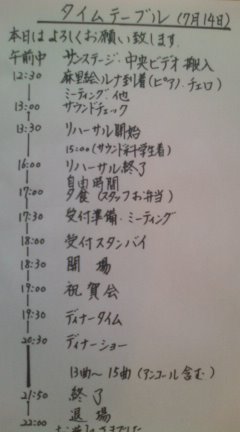 タイムテーブル (7月14日)
本日は よろしくお願い致します.
午前中 サンステージ・中央ビデオ 搬入
12:30 麻里絵・ルナ到着(ピアノ・チェロ)
ミーティング・他
13:00 サウンドチェック
13:30 リハーサル開始
15:00(サウンド科学生着)
16:00 リハーサル終了
自由時間
17:00 夕食(スタッフお弁当)
17:30 受付準備・ミーティング
18:00 受付スタンバイ
18:30 開場
19:00 祝賀会
19:30 ディナータイム
20:30 ディナーショー
13曲〜15曲(アンコール含む)
21:50 終了
22:00 退場